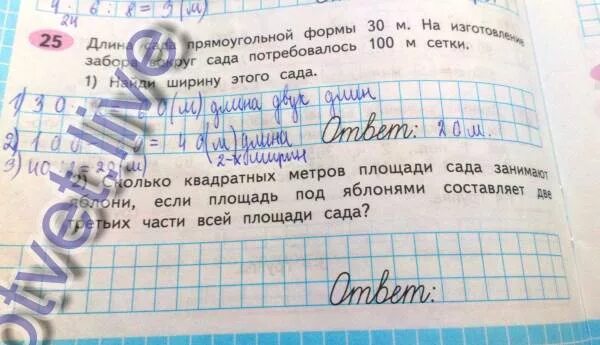 4 · 6 : 8 = 3 (м)
24
25 Длина сада прямоугольной формы 30 м. На изготовление
забора вокруг сада потребовалось 100 м сетки.
1) Найди ширину этого сада.
1) 30 · 0 (м) длина двух длин
2) 100 - 0 = 40(м) длина
2-х ширин
Ответ: 20 м.
3) 40 : = 20 (м)
2) Сколько квадратных метров площади сада занимают
яблони, если площадь под яблонями составляет две
третьих части всей площади сада?
Ответ:
otvet.live